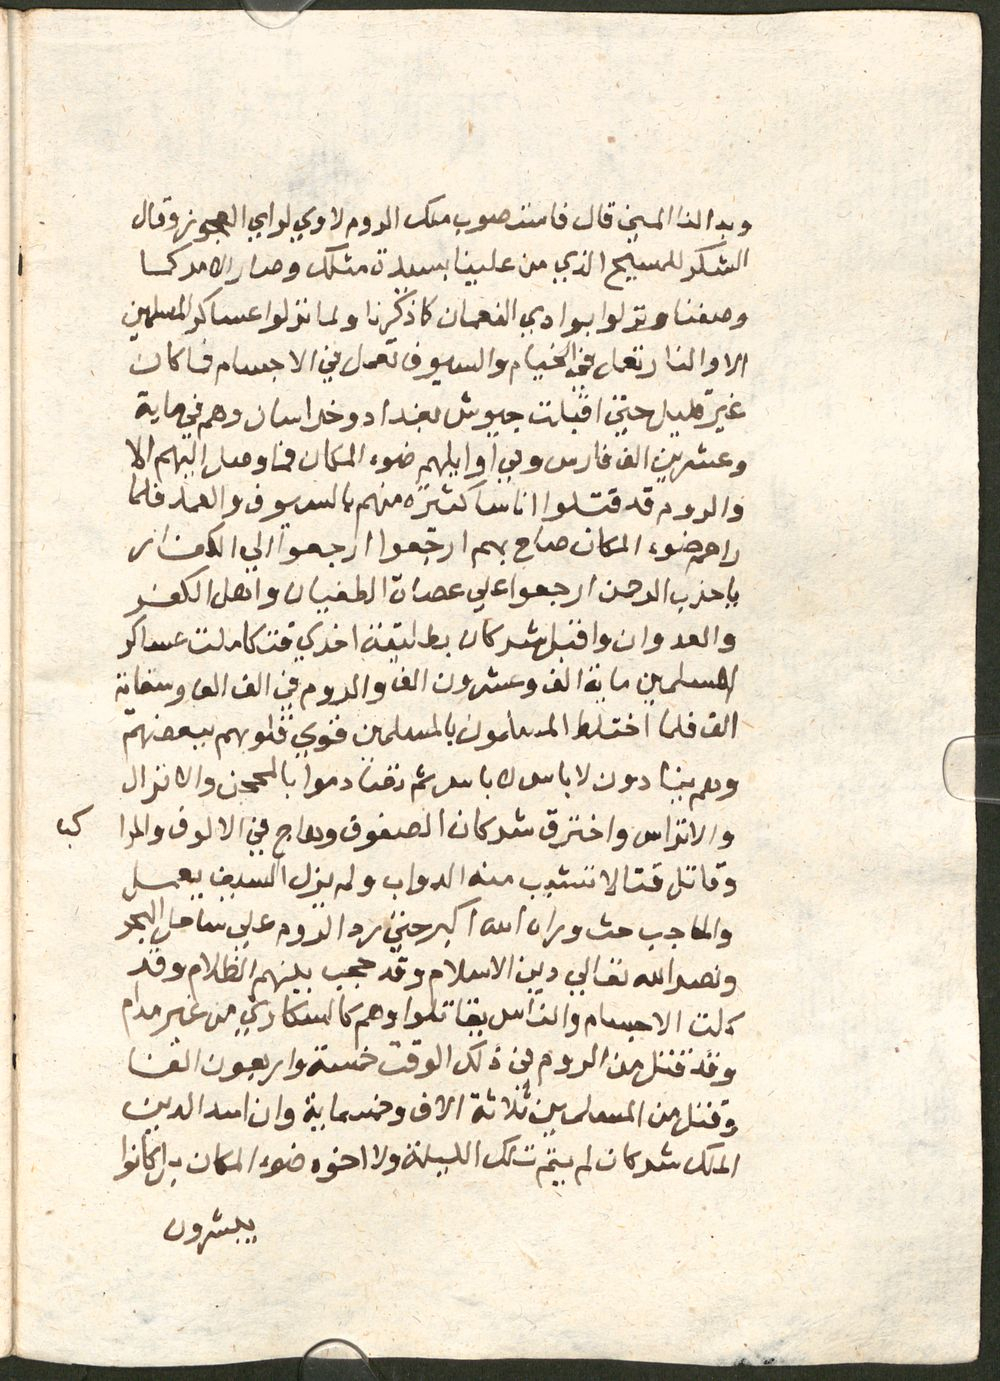 وبدا لنا المين قال فاستصوب ملك الروم لاوي لراي العجوز وقال
الشكر للمسيح الذي من علينا بسيدة مثلك وصار الامر كما
وصفنا ونزلوا بوادي النعمان كما ذكرنا ولما نزلوا عساكر المسلمين
الا والنار تعمل في الخيام والسيوف تعمل في الاجسام فما كان
غير قليل حتى اقبلت جيوش بغداد وخراسان وهم في ماية
وعشرين الف فارس وفي اوايلهم ضوء المكان فما وصل اليهم الا
والروم قد قتلوا اناسا كثيره منهم بالسيوف والعمد فلما
راهم ضوء المكان صاح بهم ارجعوا ارجعوا الي الكفار
يا حزب الرحمن ارجعوا علي عصاة الطغيان واهل الكفر
والعدوان واقبل شركان بطايفة اخري فتكاملت عساكر
المسلمين ماية الف وعشرون الف والروم في الف الف وستماية
الف فلما اختلط المسلمون بالمسلمين قوي قلوبهم ببعضهم
وهم ينادون لا باس لا باس ثم تصادموا بالمحجن والانزال
والاتراس واخترق شركان الصفوف وهاج في الالوف والمرا
كبا
وقاتل قتالا تشيب منه الدواب ولم يزل السيف يعمل
والحاجب حث وراه الله اكبر حتي رد الروم علي ساحل البحر
ونصر الله تعالي دين الاسلام وقد حجب بينهم الظلام وقد
كلت الاجسام والناس يقاتلوا وهم كالسكاري من غير مدام
وقد قتل من الروم في ذلك الوقت خمسة واربعون الفا
وقتل من المسلمين ثلاثة الاف وخمسماية وان اسد الدين
الملك شركان لم ينم تلك الليلة ولا اخوه ضوء المكان بل كانوا
يبشرون